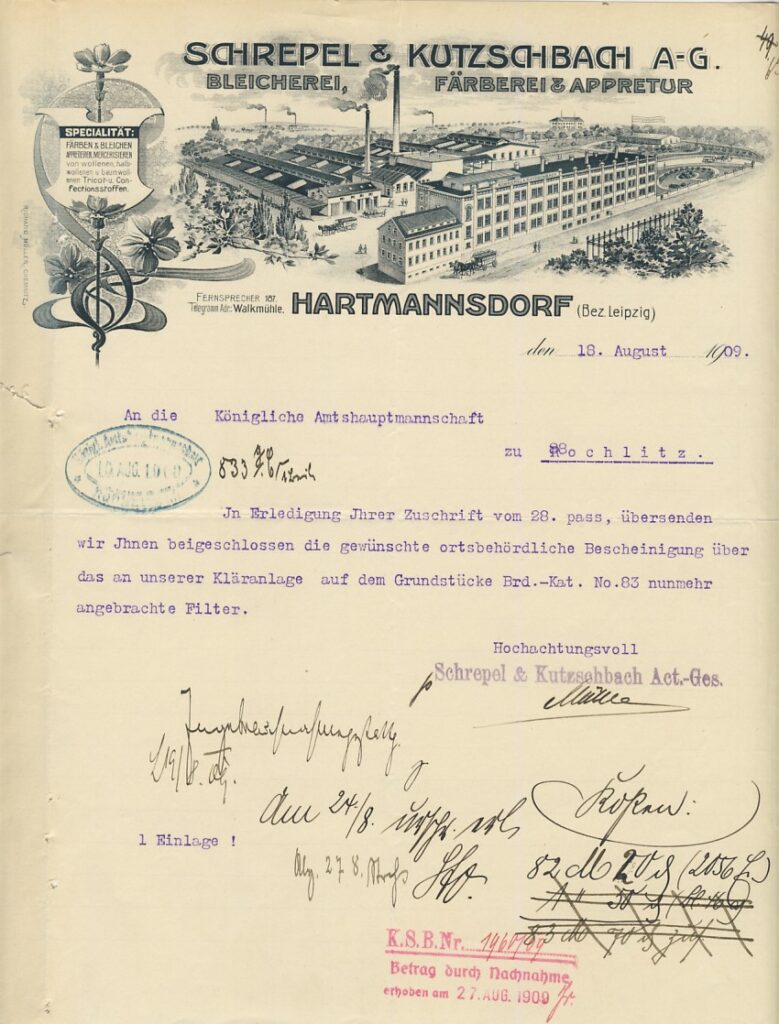 SCHREPEL & KUTZSCHBACH A-G.
BLEICHEREI, FÄRBEREI & APPRETUR
SPECIALITÄT:
FÄRBEN & BLEICHEN
APPRETIEREN, MERCERISIEREN
von wollenen, halb-
wollenen u. baumwol-
lenen Tricot-u. Con-
fectionsstoffen.
FERNSPRECHER 187.
Telegramm Adr.: Walkmühle.
HARTMANNSDORF (Bez. Leipzig)
den 18. August 1909.
An die Königliche Amtshauptmannschaft
zu Rochlitz.
19. AUG. 1909
833
Jn Erledigung Jhrer Zuschrift vom 28. pass, übersenden
wir Jhnen beigeschlossen die gewünschte ortsbehördliche Bescheinigung über
das an unserer Kläranlage auf dem Grundstücke Brd.-Kat. No.83 nunmehr
angebrachte Filter.
Hochachtungsvoll
Schrepel & Kutzschbach Act.-Ges.
19/8.
Am 24/8.
Kosten:
1 Einlage !
27 8.
82 M 20
K.S.B.Nr. 1960/09
Betrag durch Nachnahme
erhoben am 27. AUG. 1909